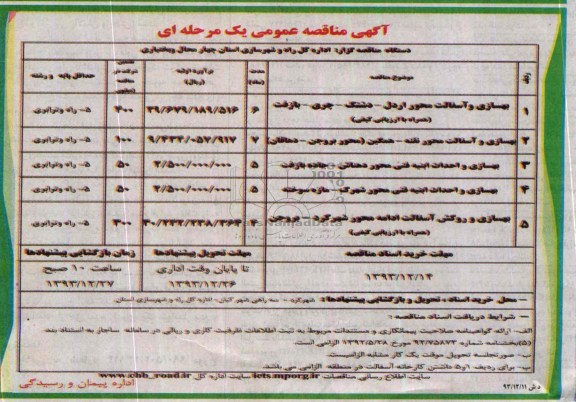 آگهی مناقصه عمومی یک مرحله ای
دستگاه مناقصه گزار: اداره کل راه و شهرسازی استان چهار محال وبختیاری
ردیف موضوع مناقصه مدت (ماه) برآورد اولیه (ریال) تضمین شرکت در مناقصه حداقل پایه و رشته
۱ بهسازی وآسفالت محور اردل - دشتک - چری - بازفت (همراه با ارزیابی کیفی) ۶ ۳۹/۶۷۹/۱۸۹/۵۱۶ ۴۰۰ ۵- راه وترابری
۲ بهسازی و آسفالت محور نقنه - همگین (محور بروجن - دهاقان) ۷ ۹/۴۳۴/۰۵۷/۹۱۷ ۱۰۰ ۵- راه وترابری
۳ بهسازی و احداث ابنیه فنی محور دهناش - جاده بازفت ۵ ۲/۵۰۰/۰۰۰/۰۰۰ ۵۰ ۵- راه وترابری
۴ بهسازی و احداث ابنیه فنی محور شهرک - مازه سوخته ۵ ۲/۵۰۰/۰۰۰/۰۰۰ ۵۰ ۵- راه وترابری
۵ بهسازی و روکش آسفالت ادامه محور شهرکرد - بروجن (همراه با ارزیابی کیفی) ۴ ۳۰۰ ۵- راه وترابری
مهلت خرید اسناد مناقصه مهلت تحویل پیشنهادها زمان بازگشایی پیشنهادها
۱۳۹۳/۱۲/۱۴ تا پایان وقت اداری ۱۳۹۳/۱۲/۲۶ ساعت ۱۰ صبح ۱۳۹۳/۱۲/۲۷
- محل خرید اسناد ، تحویل و بازگشایی پیشنهادها : شهرکرد - سه راهی شهر کیان - اداره کل راه و شهرسازی استان.
- شرایط دریافت اسناد مناقصه :
الف- ارائه گواهینامه صلاحیت پیمانکاری و مستندات مربوط به ثبت اطلاعات ظرفیت کاری و ریالی در سامانه ساجار به استناد بند
(۵)بخشنامه شماره ۹۲/۷۵۸۷۳ مورخ ۱۳۹۲/۵/۲۸ الزامی است.
ب- صورتجلسه تحویل موقت یک کار مشابه الزامیست.
پ- برای ردیف ۱و۵ داشتن کارخانه آسفالت در منطقه الزامی می باشد.
سایت اطلاع رسانی مناقصات iets.mporg.ir سایت اداره کل www.chb_road.ir
اداره پیمان و رسیدگی
م ش ۹۳/۱۲/۱۱